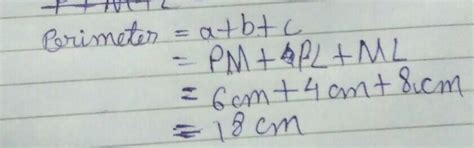 Perimeter = a+b+c
= PM + PL + ML
= 6cm + 4cm + 8cm
= 18 cm